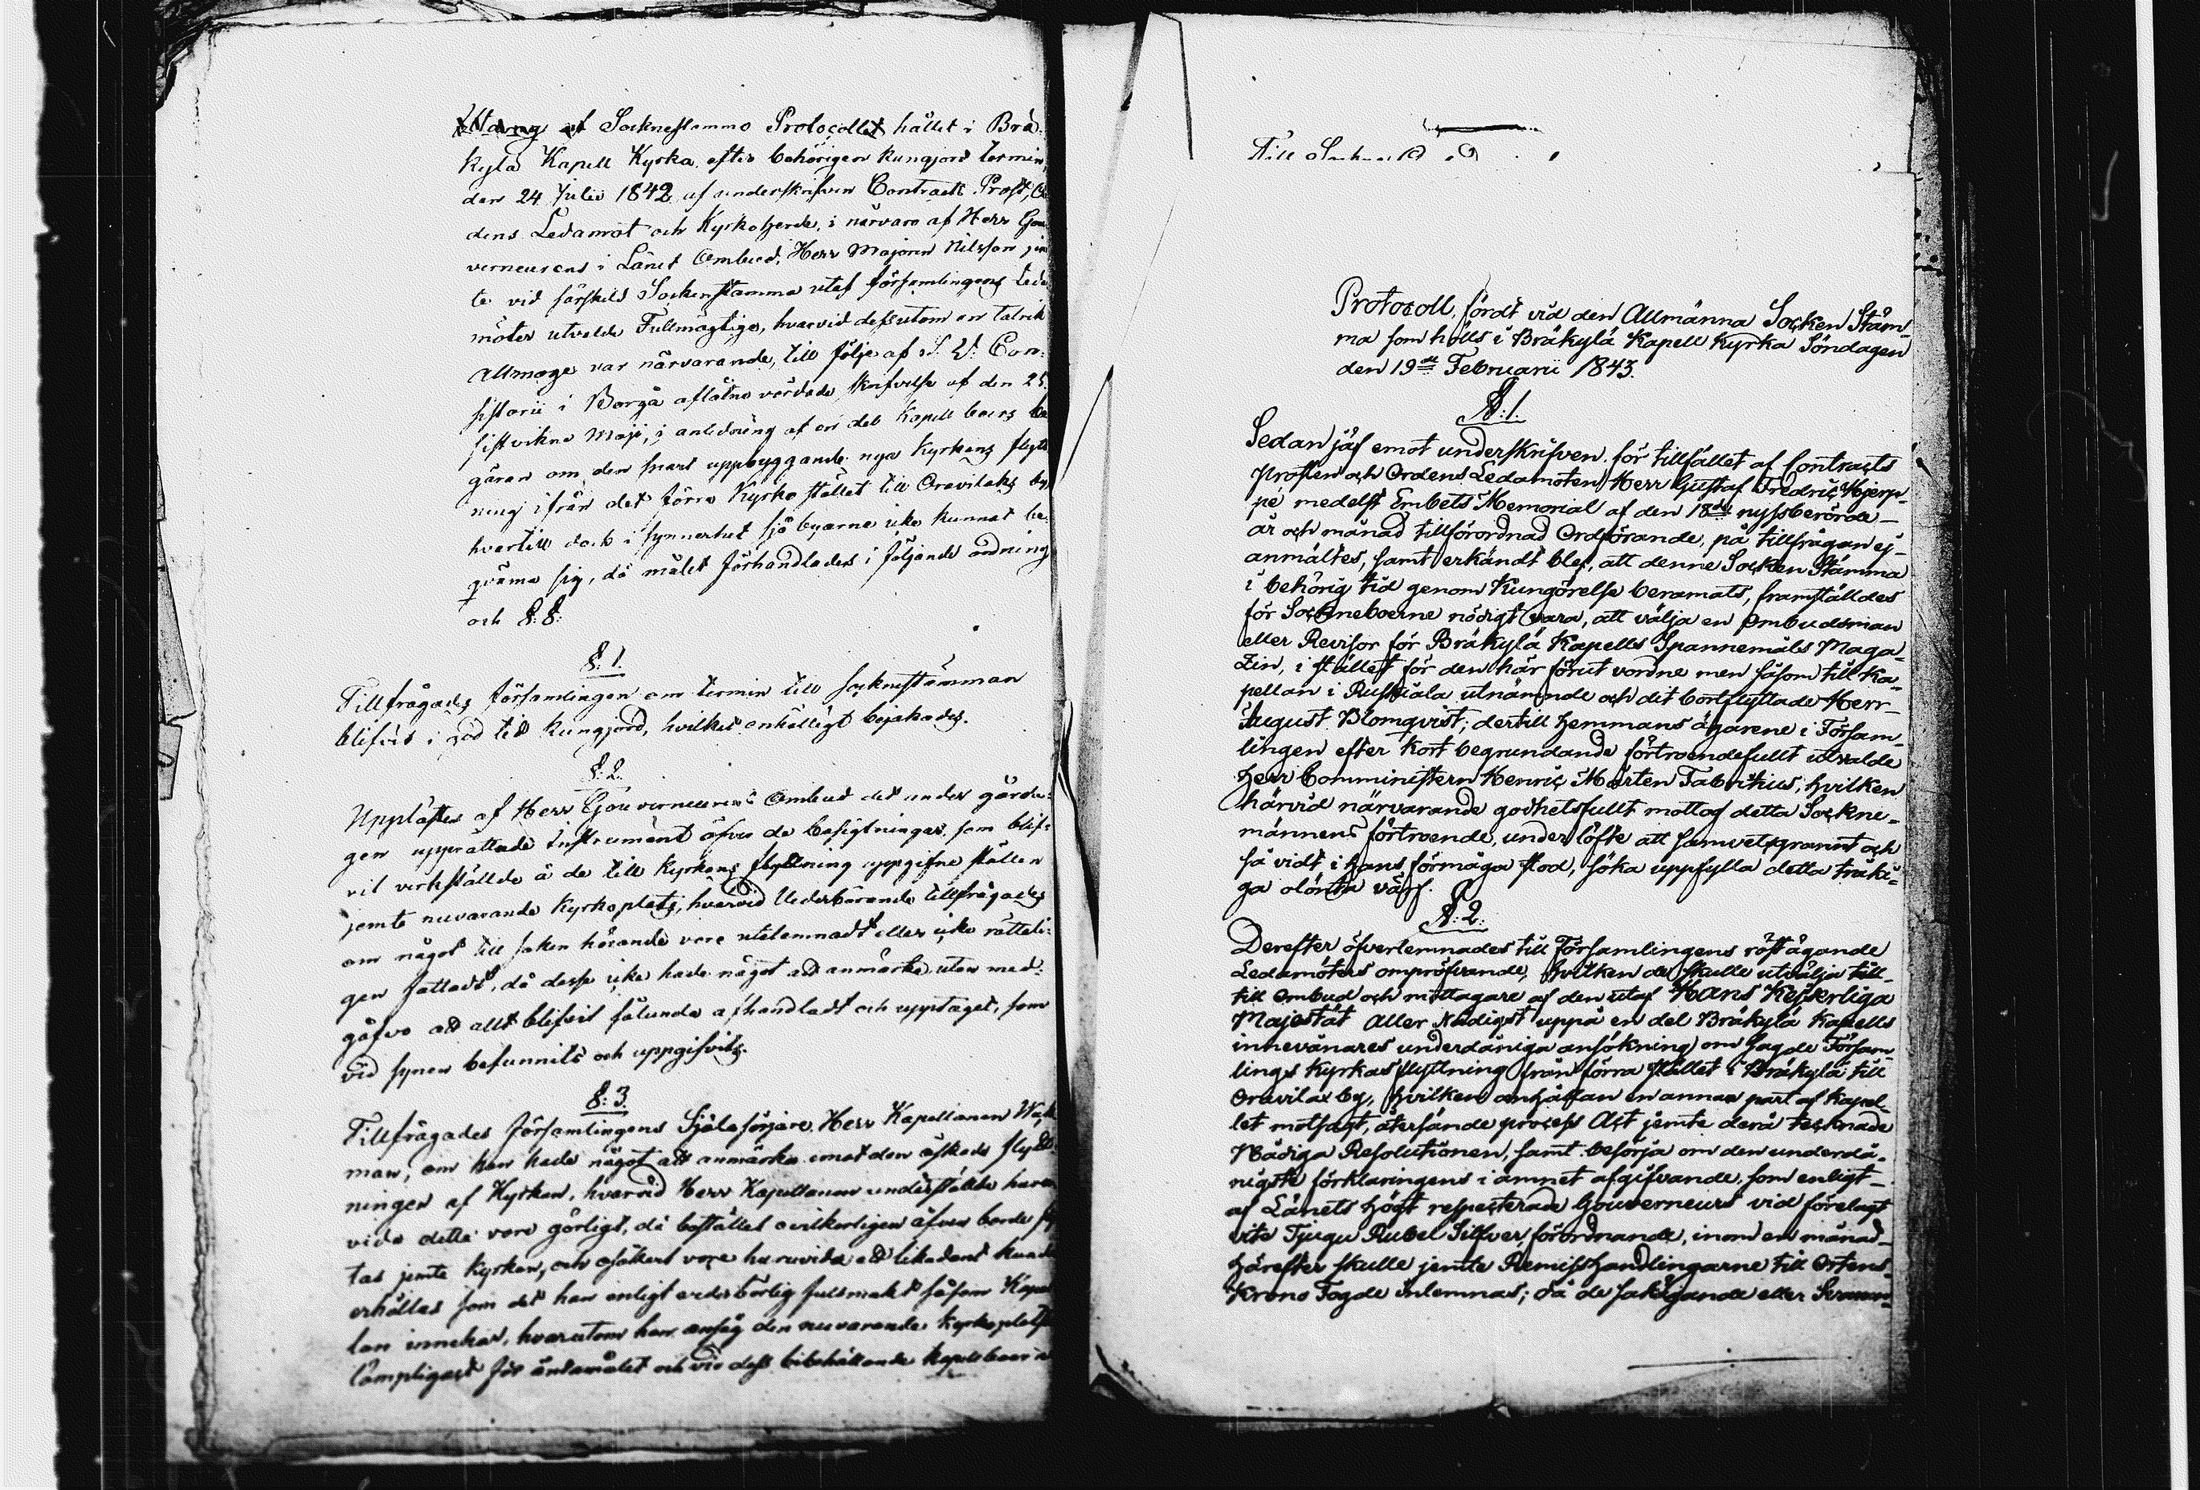 Utdrag af Sockenstammo Protocollet hållet i Brä-
kylä Kapell Kyrka efter behörigen kungjord termin,
den 24 Julii 1842 af underskrifven Contracts Prost, Or
dens Ledamot och Kyrkoherde, i närvaro af Herr Gou
verneurens i Länet Ombud, Herr Majoren Nilsson jem
te vid särskild Sockenstamma utaf församlingens Leda
möter utvalde Fullmägtige, hvarvid dessutom en talrik
Allmoge var närvarande, till följe af V. Con-
sistorii i Borgå aflåtne vördade skrifvelse af den 25
sistvikne Maji, i anledning af en del Kapell boers be
gäran om den snart uppbyggande nya Kyrkans flytt
ning ifrån det förra Kyrko stället till Oravilaks by,
hvartill dock i synnerhet sjöbyarne icke kunnat be-
qväma sig, då målet förhandlades i följande ordning
och §.§:
§: 1.
Tillfrågades församlingen om termin till sockenstämman
blifvit i god tid kungjord, hvilket enhälligt bejakades.
§: 2.
Upplästes af Herr Gouverneurens Ombud det under gårda-
gen upprättade Instrument öfver de besigtningar som blif-
vit verkställde å de till Kyrkans flyttning uppgifne ställen
jemte nuvarande Kyrkoplats, hvarvid Vederbörande tillfrågades
om något till saken hörande vore utelemnadt eller icke rätteli-
gen fattadt, då desse icke hade något att anmärka utan med-
gåfvo att allt blifvit sålunda afhandladt och upptaget, som
vid synen befunnits och uppgifvits.
§: 3.
Tillfrågades församlingens Själasörjare Herr Kapellanen
man, om han hade något att anmärka emot den äskade flytt-
ningen af Kyrkan, hvarvid Herr Kapellanen underställde huru
vida detta vore görligt, då bostället ovilkorligen äfven borde fly
tas jemte Kyrkan, och osäkert vore huruvida ett likadant kunde
erhållas som det han enligt vederbörlig fullmakt såsom Kapel
lan innehar, hvarutom han ansåg den nuvarande Kyrkoplatsen
lämpligast för ändamålet och vid dess bibehållande Kapellboerne
Till
Protocoll, fördt vid den Allmänna Socken Stäm-
ma som hölls i Bräkylä Kapell Kyrka Söndagen
den 19de Februarii 1843.
§: 1.
Sedan jäf emot underskrifven för tillfället af Contracts
Prosten och Ordens Ledamoten Herr Gustaf Fredric Hjerp-
pe medelst Embets Memorial af den 18de nyssberörde
år och månad tillförordnad Ordförande, på tillfrågan ej
anmältes, samt erkändt blef, att denne Socken Stämma
i behörig tid genom Kungörelse beramats, framställdes
för Sockneboerne nödigt vara, att välja en Ombudsman
eller Revisor för Bräkylä Kapells Spannemåls Maga-
zin, i stället för den här förut vordne men såsom till Ka-
pellan i Ruskiala utnämnde och dit bortflyttade Herr
August Blomqvist; dertill Hemmans ägarene i Försam-
lingen efter kort begrundande förtroendefullt utvalde
Herr Comministern Henric Mårten Fabritius, hvilken
härvid närvarande godhetsfullt mottog detta Sockne-
männens förtroende, under löfte att samvetsgrannt och
så vidt i hans förmåga stod, söka uppfylla detta tråki-
ga olönta värf.
§: 2.
Derefter öfverlemnades till Församlingens röst ägande
Ledamöters ompröfvande, hvilken de skulle utvälja till
till Ombud och mottagare af den utaf Hans Kejserliga
Majestät Aller Nådigst uppå en del Bräkylä Kapells
innevånares underdåniga ansökning om sagde Försam-
lings Kyrkas flyttning från förra stället i Bräkylä till
Oravilax by, hvilken anhållan en annan part af Kapel-
let motsagt, återsände process Act jemte derå tecknade
Nådiga Resolutionen, samt besörja om den underdå-
nigste förklaringens i ämnet afgifvande, som enligt
af Länets högt respecterade Gouverneurs vid förelagt
vite Tjugu Rubel Silfver, förordnande, inom en månad
härefter skulle jemte Remisshandlingarne till Ortens
Krono Fogde inlemnas; då de sakägande eller